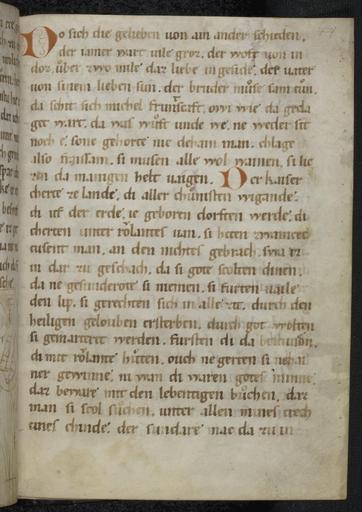 Do sich die gelieben uon ain ander schieden.
der iamer wart uile groz. der wofͤ uon in
doz. uͦber zwo mile. daz liebe ingeside. der uater
uon sinem lieben sun. der bruder muͦse sam tuͦn.
da schit sich michel fruͦntscaft. owi wie da geda
get wart. da was wuͦft unde we. ne weder sit
noch e. sone gehorte nie dehain man. chlage
also fraissam. si musen alle wol wainen. si lie
zen da manigen helt uaigen. Der kaiser
cherte ze lande. di aller chuͦnisten wigande.
di uf der erde. ie geboren dorften werde. di
cherten unter rolantes uan. si heten zwaincec
tusent man. an den nichtes gebrach. swa ez
in dar zu geschach. da si gote scolten dinen.
da ne gesunderote si niemen. si furten uaile
den lip. si gerechten sich in alle zit. durch den
heiligen gelouben ersterben. durch got wolten
si gemarteret werden. fursten di da beliuben.
di mit rolante huten. ouch ne gerten si nehai
ner gewinne. ni wan di waren gotes minne.
daz beware mit den lebentigen buͦchen. daz
man si scol suͦchen. unter allen himelisken
eines chinde. der sundare mac da zu in